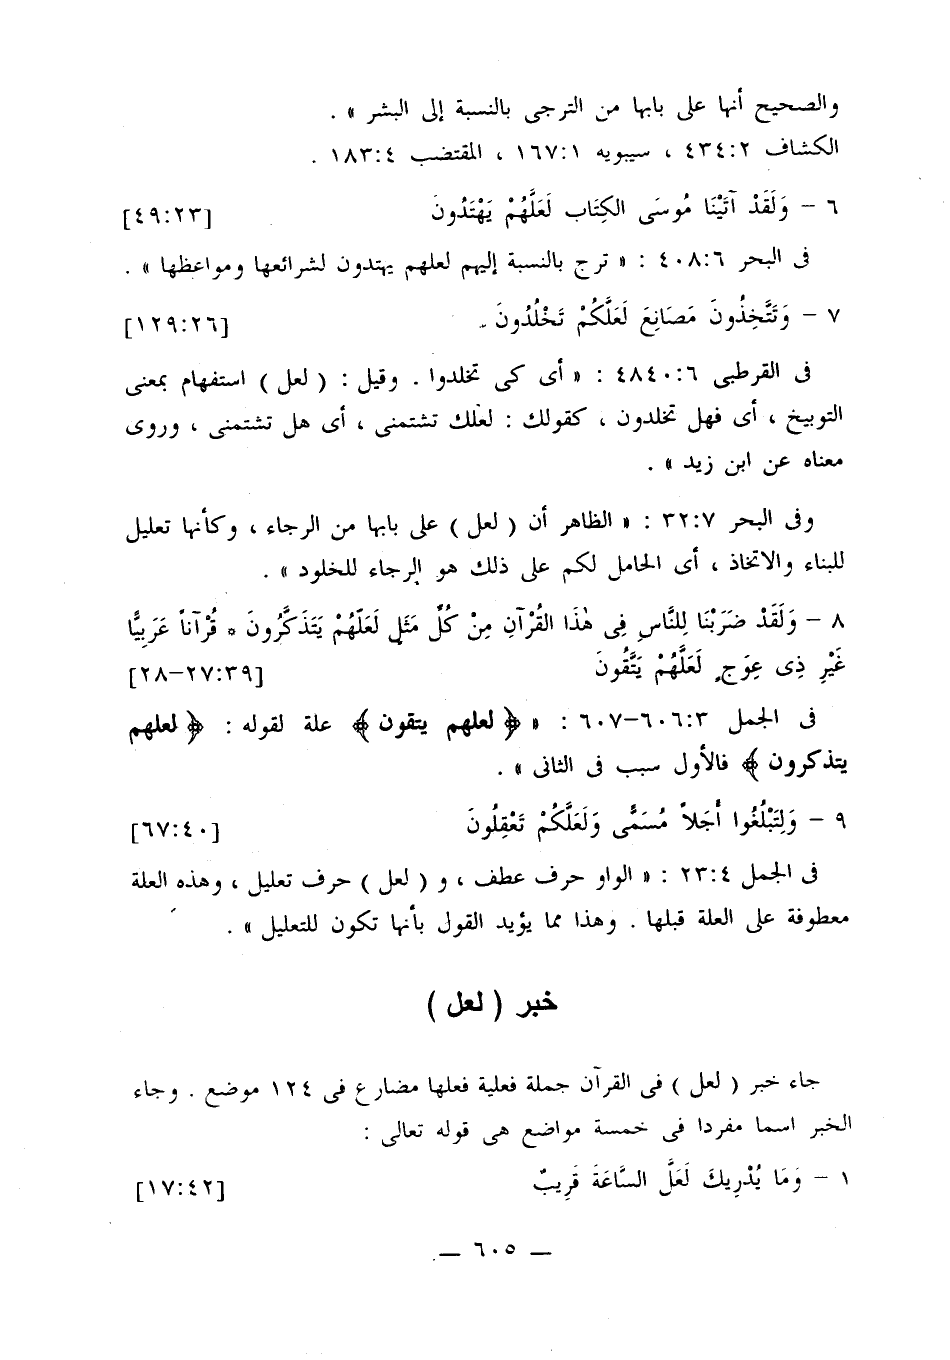 والصحيح أنها على بابها من الترجى بالنسبة إلى البشر » .
الكشاف ٤٣٤:٢ ، سيبويه ١٦٧:١ ، المقتضب ١٨٣:٤ .
٦ – وَلَقَدْ آتَيْنَا مُوسَى الكِتَاب لَعَلَّهُمْ يَهْتَدُونَ [٤٩:٢٣]
فى البحر ٤٠٨:٦ : « ترج بالنسبة إليهم لعلهم يهتدون لشرائعها ومواعظها » .
٧ – وَتَتَّخِذُونَ مَصَانِعَ لَعَلَّكُمْ تَخْلُدُونَ [١٢٩:٢٦]
فى القرطبى ٤٨٤٠:٦ : « أى كى تخلدوا . وقيل : ( لعل ) استفهام بمعنى
التوبيخ ، أى فهل تخلدون ، كقولك : لعلك تشتمنى ، أى هل تشتمنى ، وروى
معناه عن ابن زيد » .
وفى البحر ٣٢:٧ : « الظاهر أن ( لعل ) على بابها من الرجاء ، وكأنها تعليل
للبناء والاتخاذ ، أى الحامل لكم على ذلك هو الرجاء للخلود » .
٨ – وَلَقَدْ ضَرَبْنَا لِلنَّاسِ فِى هٰذَا القُرْآنِ مِنْ كُلِّ مَثَلٍ لَعَلَّهُمْ يَتَذَكَّرُونَ * قُرْآناً عَرَبِيًّا
غَيْرِ ذِى عِوَجٍ لَعَلَّهُمْ يَتَّقُونَ [٢٧:٣٩–٢٨]
فى الجمل ٦٠٦:٣–٦٠٧ : « ﴿ لعلهم يتقون ﴾ علة لقوله : ﴿ لعلهم
يتذكرون ﴾ فالأول سبب فى الثانى » .
٩ – وَلِتَبْلُغُوا أَجَلاً مُسَمًّى وَلَعَلَّكُمْ تَعْقِلُونَ [٦٧:٤٠]
فى الجمل ٢٣:٤ : « الواو حرف عطف ، و ( لعل ) حرف تعليل ، وهذه العلة
معطوفة على العلة قبلها . وهذا مما يؤيد القول بأنها تكون للتعليل » .
خبر ( لعل )
جاء خبر ( لعل ) فى القرآن جملة فعلية فعلها مضارع فى ١٢٤ موضع . وجاء
الخبر اسما مفردا فى خمسة مواضع هى قوله تعالى :
١ – وَمَا يُدْرِيكَ لَعَلَّ السَّاعَةَ قَرِيبٌ [١٧:٤٢]
— ٦٠٥ —